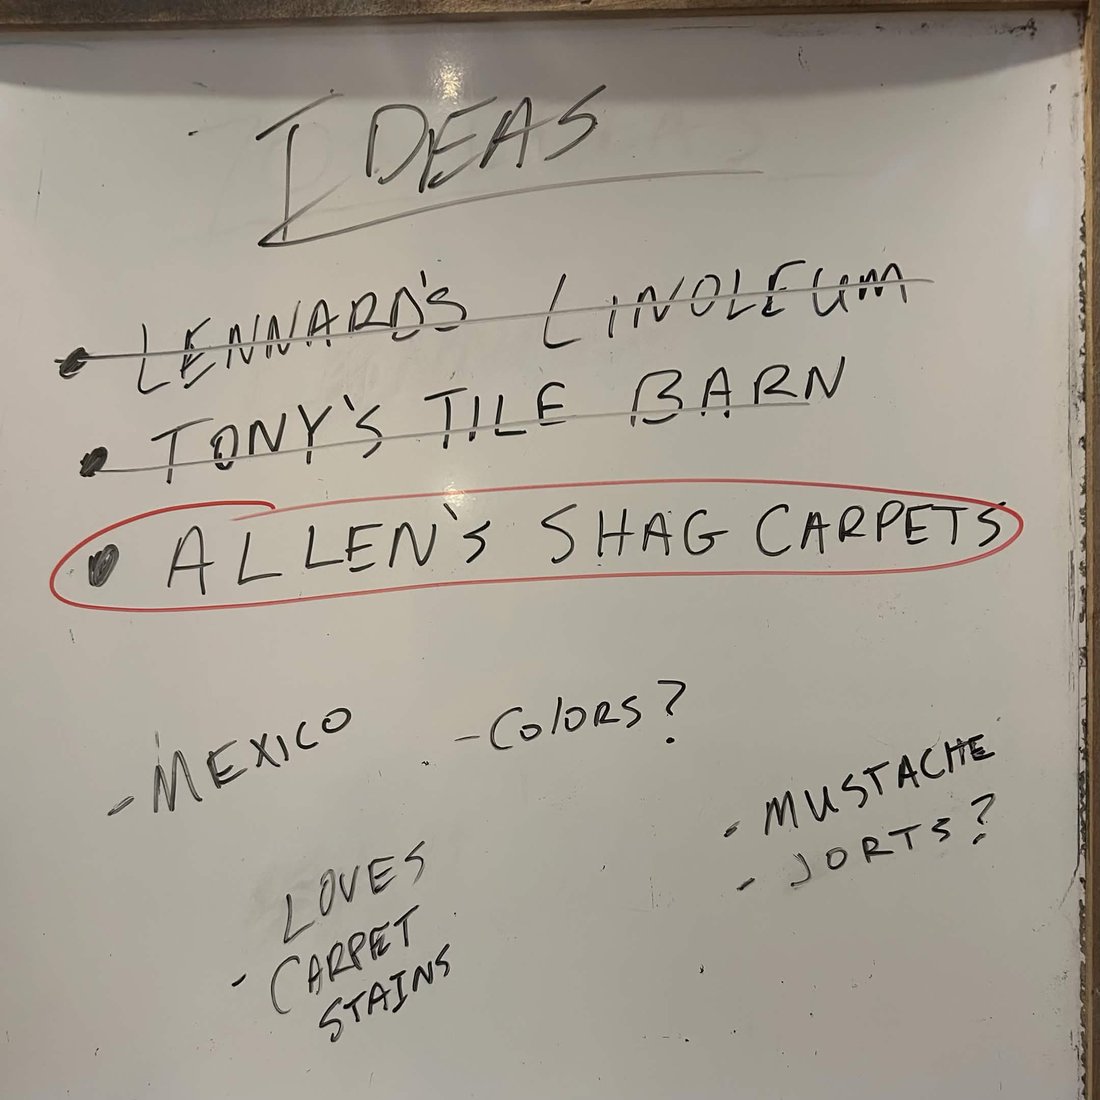 IDEAS
• LENNARD'S LINOLEUM
• TONY'S TILE BARN
• ALLEN'S SHAG CARPETS
- MEXICO
- COlORS?
- MUSTACHE
- JORTS?
LOVES
- CARPET
STAINS